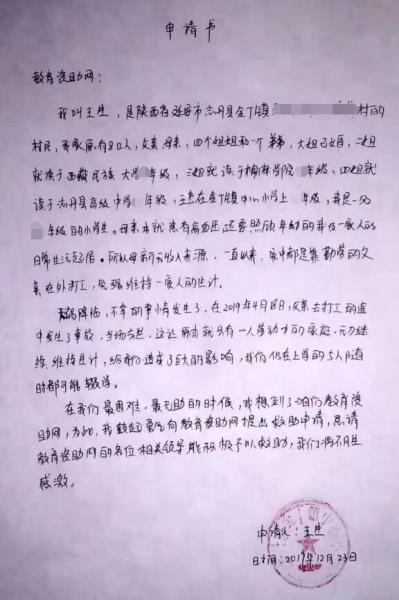 申请书
教育资助网：
我叫王生，是陕西省延安市志丹县金丁镇 村的
村民，我家原有8口人，父亲母亲，四个姐姐和一个弟弟，大姐已出嫁，二姐
就读于西藏民族大学 年级，三姐就读于榆林学院 年级，四姐就
读于志丹县高级中学 年级，王生在金丁镇中心小学上 年级，弟是一名
年级的小学生。母亲本就患有高血压还要照顾年幼的弟及一家人的
日常生活起居。所以母亲无收入来源，一直以来，家中都是靠勤劳的父
亲在外打工，勉强维持一家人的生计。
天祸降临，不幸的事情发生了，在2019年4月 日，父亲去打工的途
中发生了事故，当场去世，这让原本就只有一人劳动力的家庭，无力继
续维持生计，给我们造成了巨大的影响，我们仍在上学的5人随
时都可能辍学。
在我们最困难，最无助的时候，我想到了咱们教育资
助网，为此，我鼓起勇气向教育资助网提出救助申请，恳请
教育资助网的各位相关领导能积极予以救助，我们将不胜
感激。
申请人：王生
日期：2019年12月23日